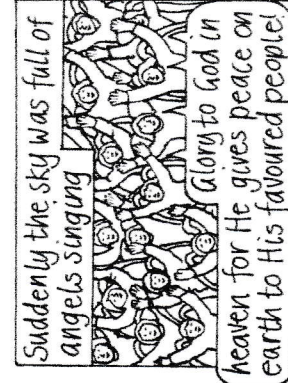 Suddenly the sky was full of
angels singing
Glory to God in
heaven for He gives peace on
earth to His favoured people!